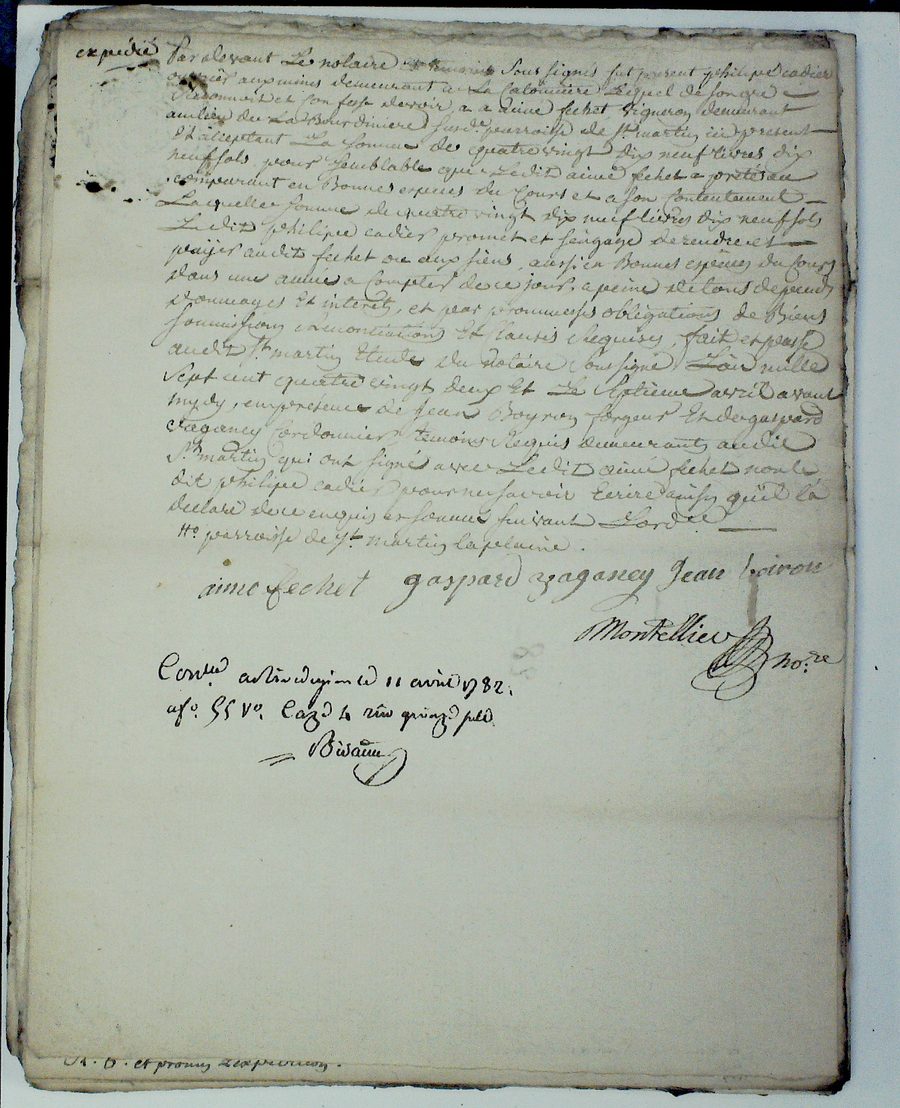 expédié
Pardevant Le notaire Sous signés fut present philipe cadier
ouvrier aux mines demeurant a La Calonniere Lequel de son gré
Reconnoit et Confesse devoir a aimé fechet Vigneron demeurant
au lieu de La Bourdiniere susde parroisse de st martin ici present
Et acceptant La Somme de quatre vingt dix neuf livres dix
neuf sols, pour semblable que Ledit aimé fechet a prêtés au
comparant en Bonnes especes du Cours et a son Contentement
Laquelle somme de quatre vingt dix neuf livres dix neuf sols
Ledit philipe cadier promet et s'engage de rendre et
payer audit fechet ou aux siens, aussi en Bonnes especes du Cours
dans une année a Compter de ce jour, a peine de tous depends
dommages Et interets, et par promesses obligations de Biens
soumissions renontiations Et Clauses Requises, fait et passé
audit st martin Etude du notaire sous signé L'an mille
sept cent quatre vingt deux Et Le septieme avril avant
midy, en presence de jean Boyron forgeur Et de gaspard
Zaganey Cordonnier temoins Requis demeurants audit
st martin qui ont signé avec Ledit aimé fechet non le
dit philipe cadier pour ne savoir Ecrire ainsy qu'il l'a
declaré de ce enquis et sommé suivant L'ordce
parroisse de st martin la plaine.
aimé fechet gaspard zaganey Jean boiron
Montellier no.re
Conlé a le 11 avril 1782.
a fo. 55 Vo. Caze 4 quinze sols
et promis Lexpedition.